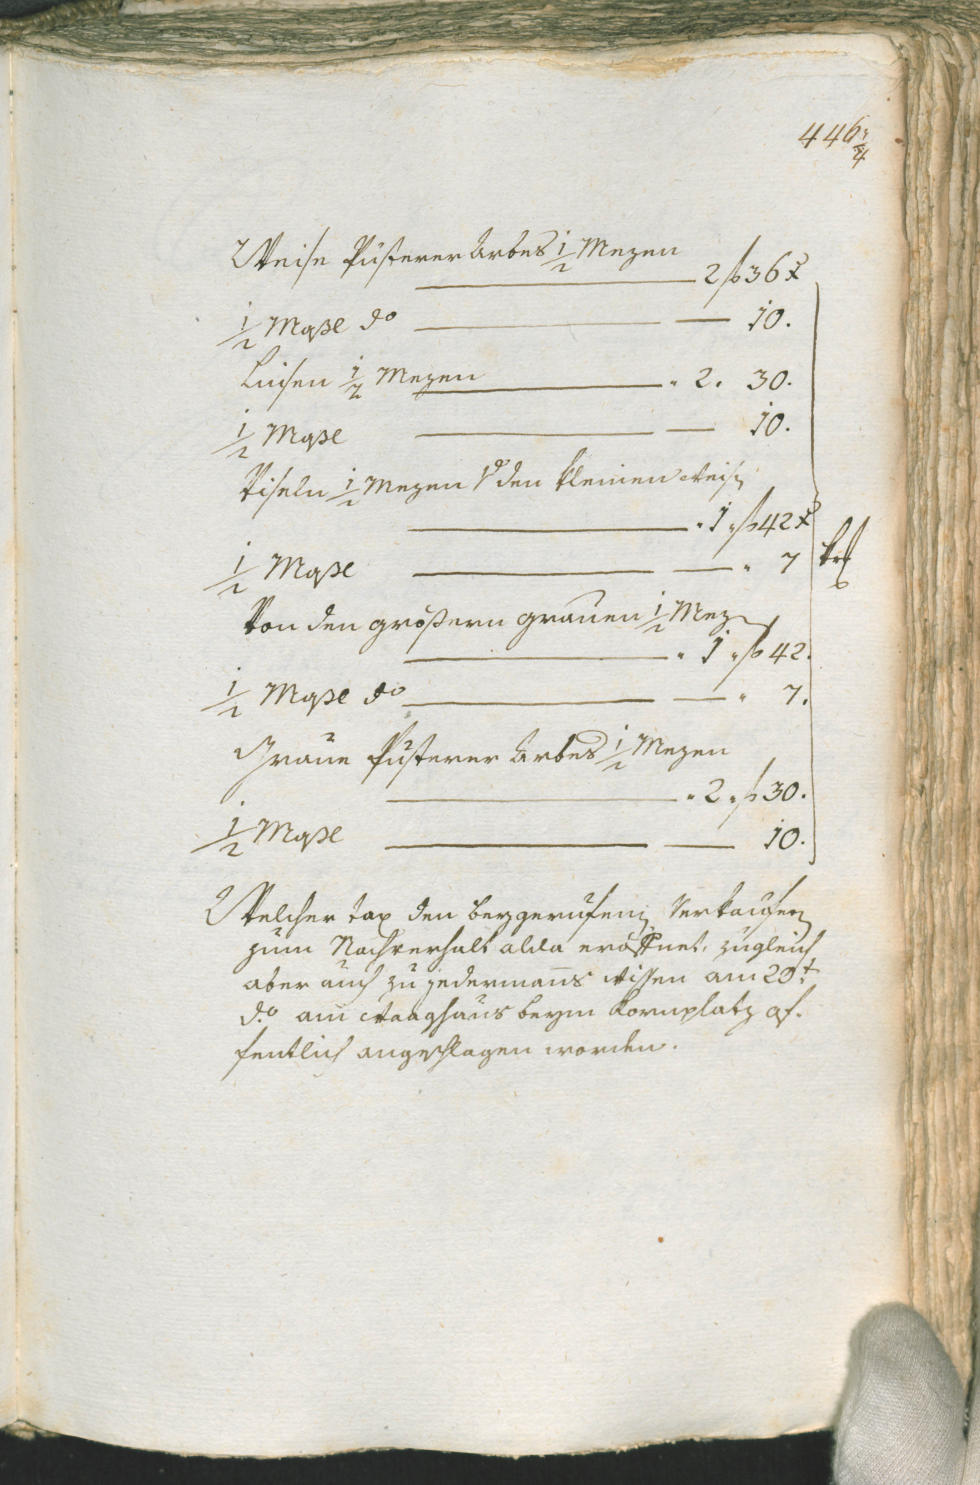 446 3/4
Weise Pusterer Arbes 1/2 Mezen
2 f 36 x
1/2 Maßl do — — 10.
Linsen 1/2 Mezen — " 2. 30.
1/2 Maßl — — 10.
Fiseln 1/2 Mezen von den kleinen Weisn
" 1 " f 42 x
1/2 Maßl — — " 7
Von den größern grauen 1/2 Mez
" 1 " f 42.
1/2 Maßl do — — " 7.
Graue Pusterer Arbes 1/2 Mezen
" 2 " f 30.
1/2 Maßl — — 10.
Welcher tax den beygerufenen Verkaufern
zum Nachverhalt alda eröffnet, zugleich
aber auch zu jedermans Wissen am 20t
do am Waaghaus beym Kornplatz öf-
fentlich angeschlagen worden.